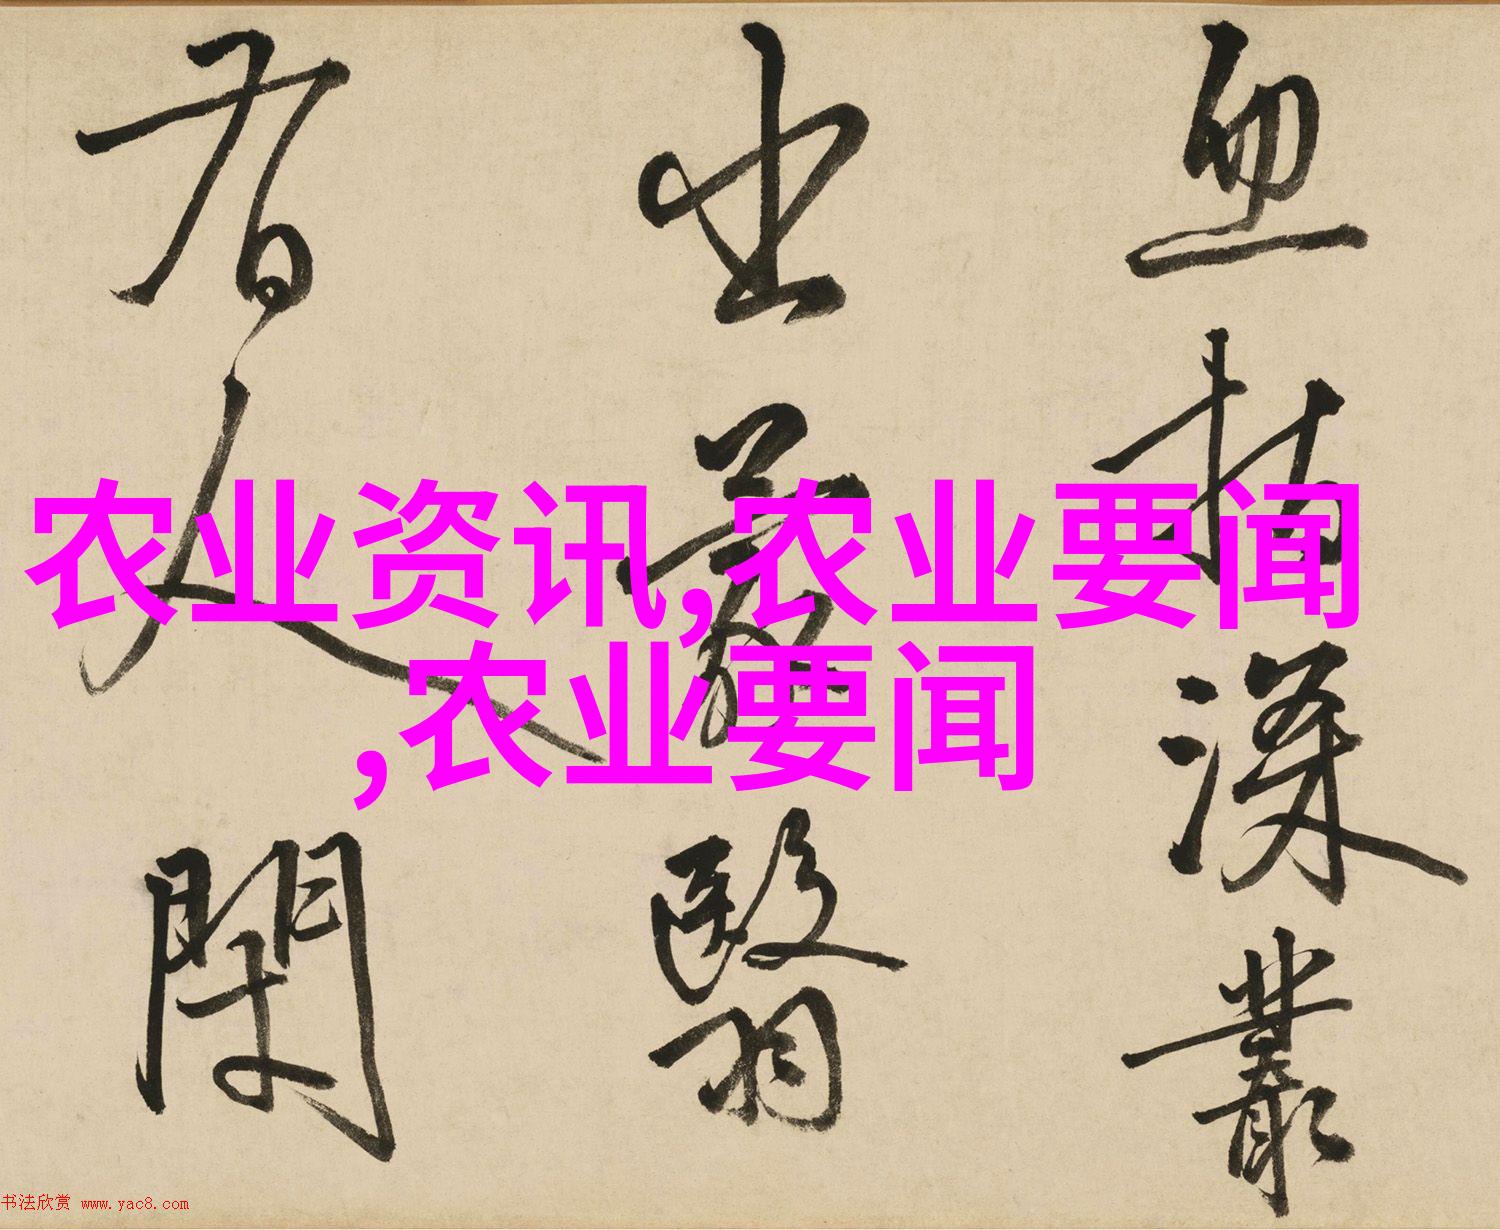 血指深叢
出蒙翳
人
农业资讯,农业要闻
,农业要闻
书法欣赏 www.yac8.com